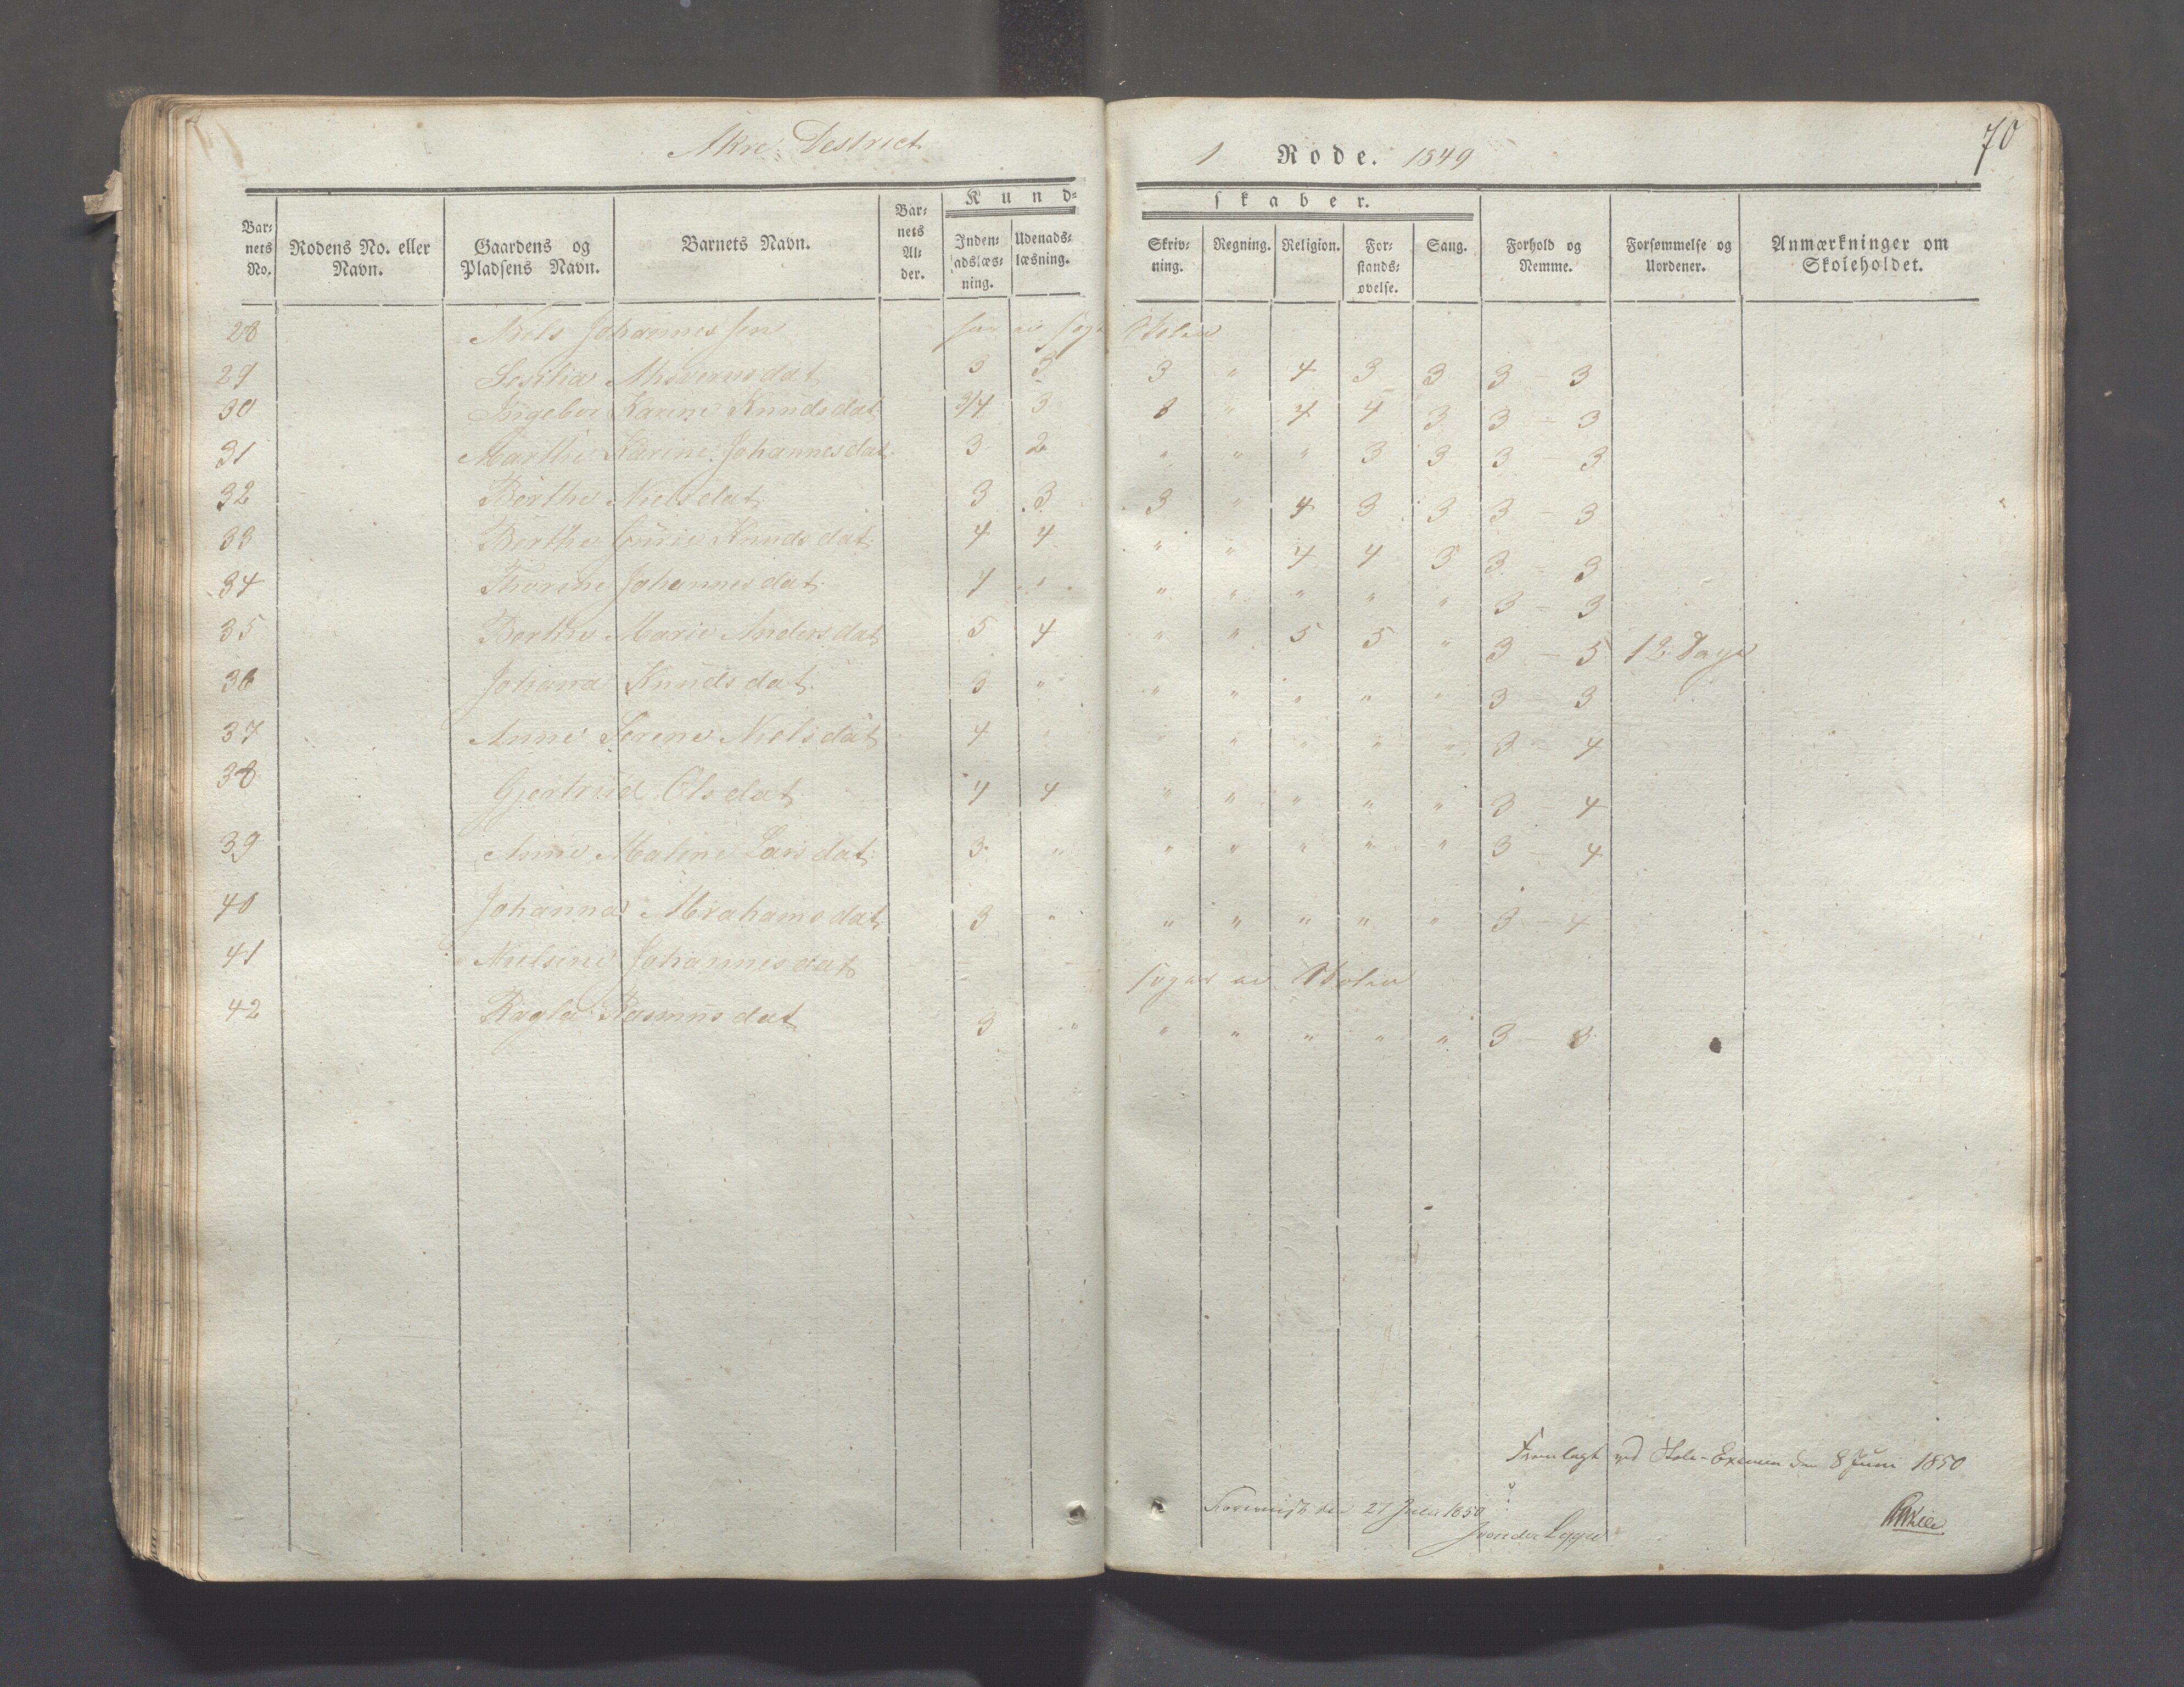 Akre District
1 Rode. 1849
70
Kund-
skaber.
Bar-
nets
No.
Rodens No. eller
Navn.
Gaardens og
Pladsens Navn.
Barnets Navn.
Bar-
nets
Al-
der.
Inden-
adslæs-
ning.
Udenads-
læsning.
Skriv-
ning.
Regning.
Religion.
For-
stands-
øvelse.
Sang.
Forhold og
Nemme.
Forsømmelse og
Uordener.
Anmærkninger om
Skoleholdet.
28 Niels Johannessen
29 Sesilia dat 3 3 3 " 4 3 3 3 - 3
30 Ingebor Karine Knudsdat 3/4 3 " 4 4 3 3 - 3
31 Marthe Karine Johannesdat 3 2 " " " 3 3 3 - 3
32 Berthe Nielsdat 3 3 3 " 4 3 3 3 - 3
33 Berthe Gurie Knudsdat 4 4 " " 4 4 3 3 - 3
34 Thorine Johannesdat 4 " " " " " " 3 - 3
35 Berthe Marie Andersdat 5 4 " " 5 5 " 3 - 5 12 Dage
36 Johana Knudsdat 3 " " " " " " 3 - 3
37 Anne Serene Nielsdat 4 " " " " " 3 - 4
38 Gjertrud Olsdat 4 4 " " " " " 3 - 4
39 Anne Malene Larsdat 3 " " " " " " 3 - 4
40 Johanna Abrahamsdat 3 " " " " " " 3 - 4
41 Nielsine Johannesdat søger ei Skolen
42 Ragla Rasmusdat 3 " " " " " " 3 -
Fremlagt ved Skole-Examen den 8 Juni 1850
den 27 Juli 1850